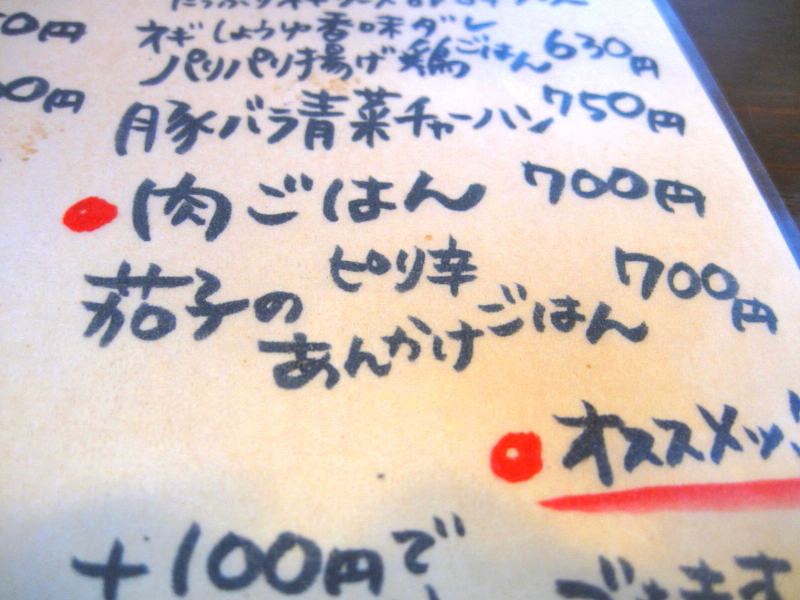 0円
ネギしょうゆ香味ダレ
パリパリ揚げ鶏ごはん 630円
00円
豚バラ青菜チャーハン 750円
肉ごはん 700円
茄子の ピリ辛 700円
あんかけごはん
オススメッ
+100円で
できます